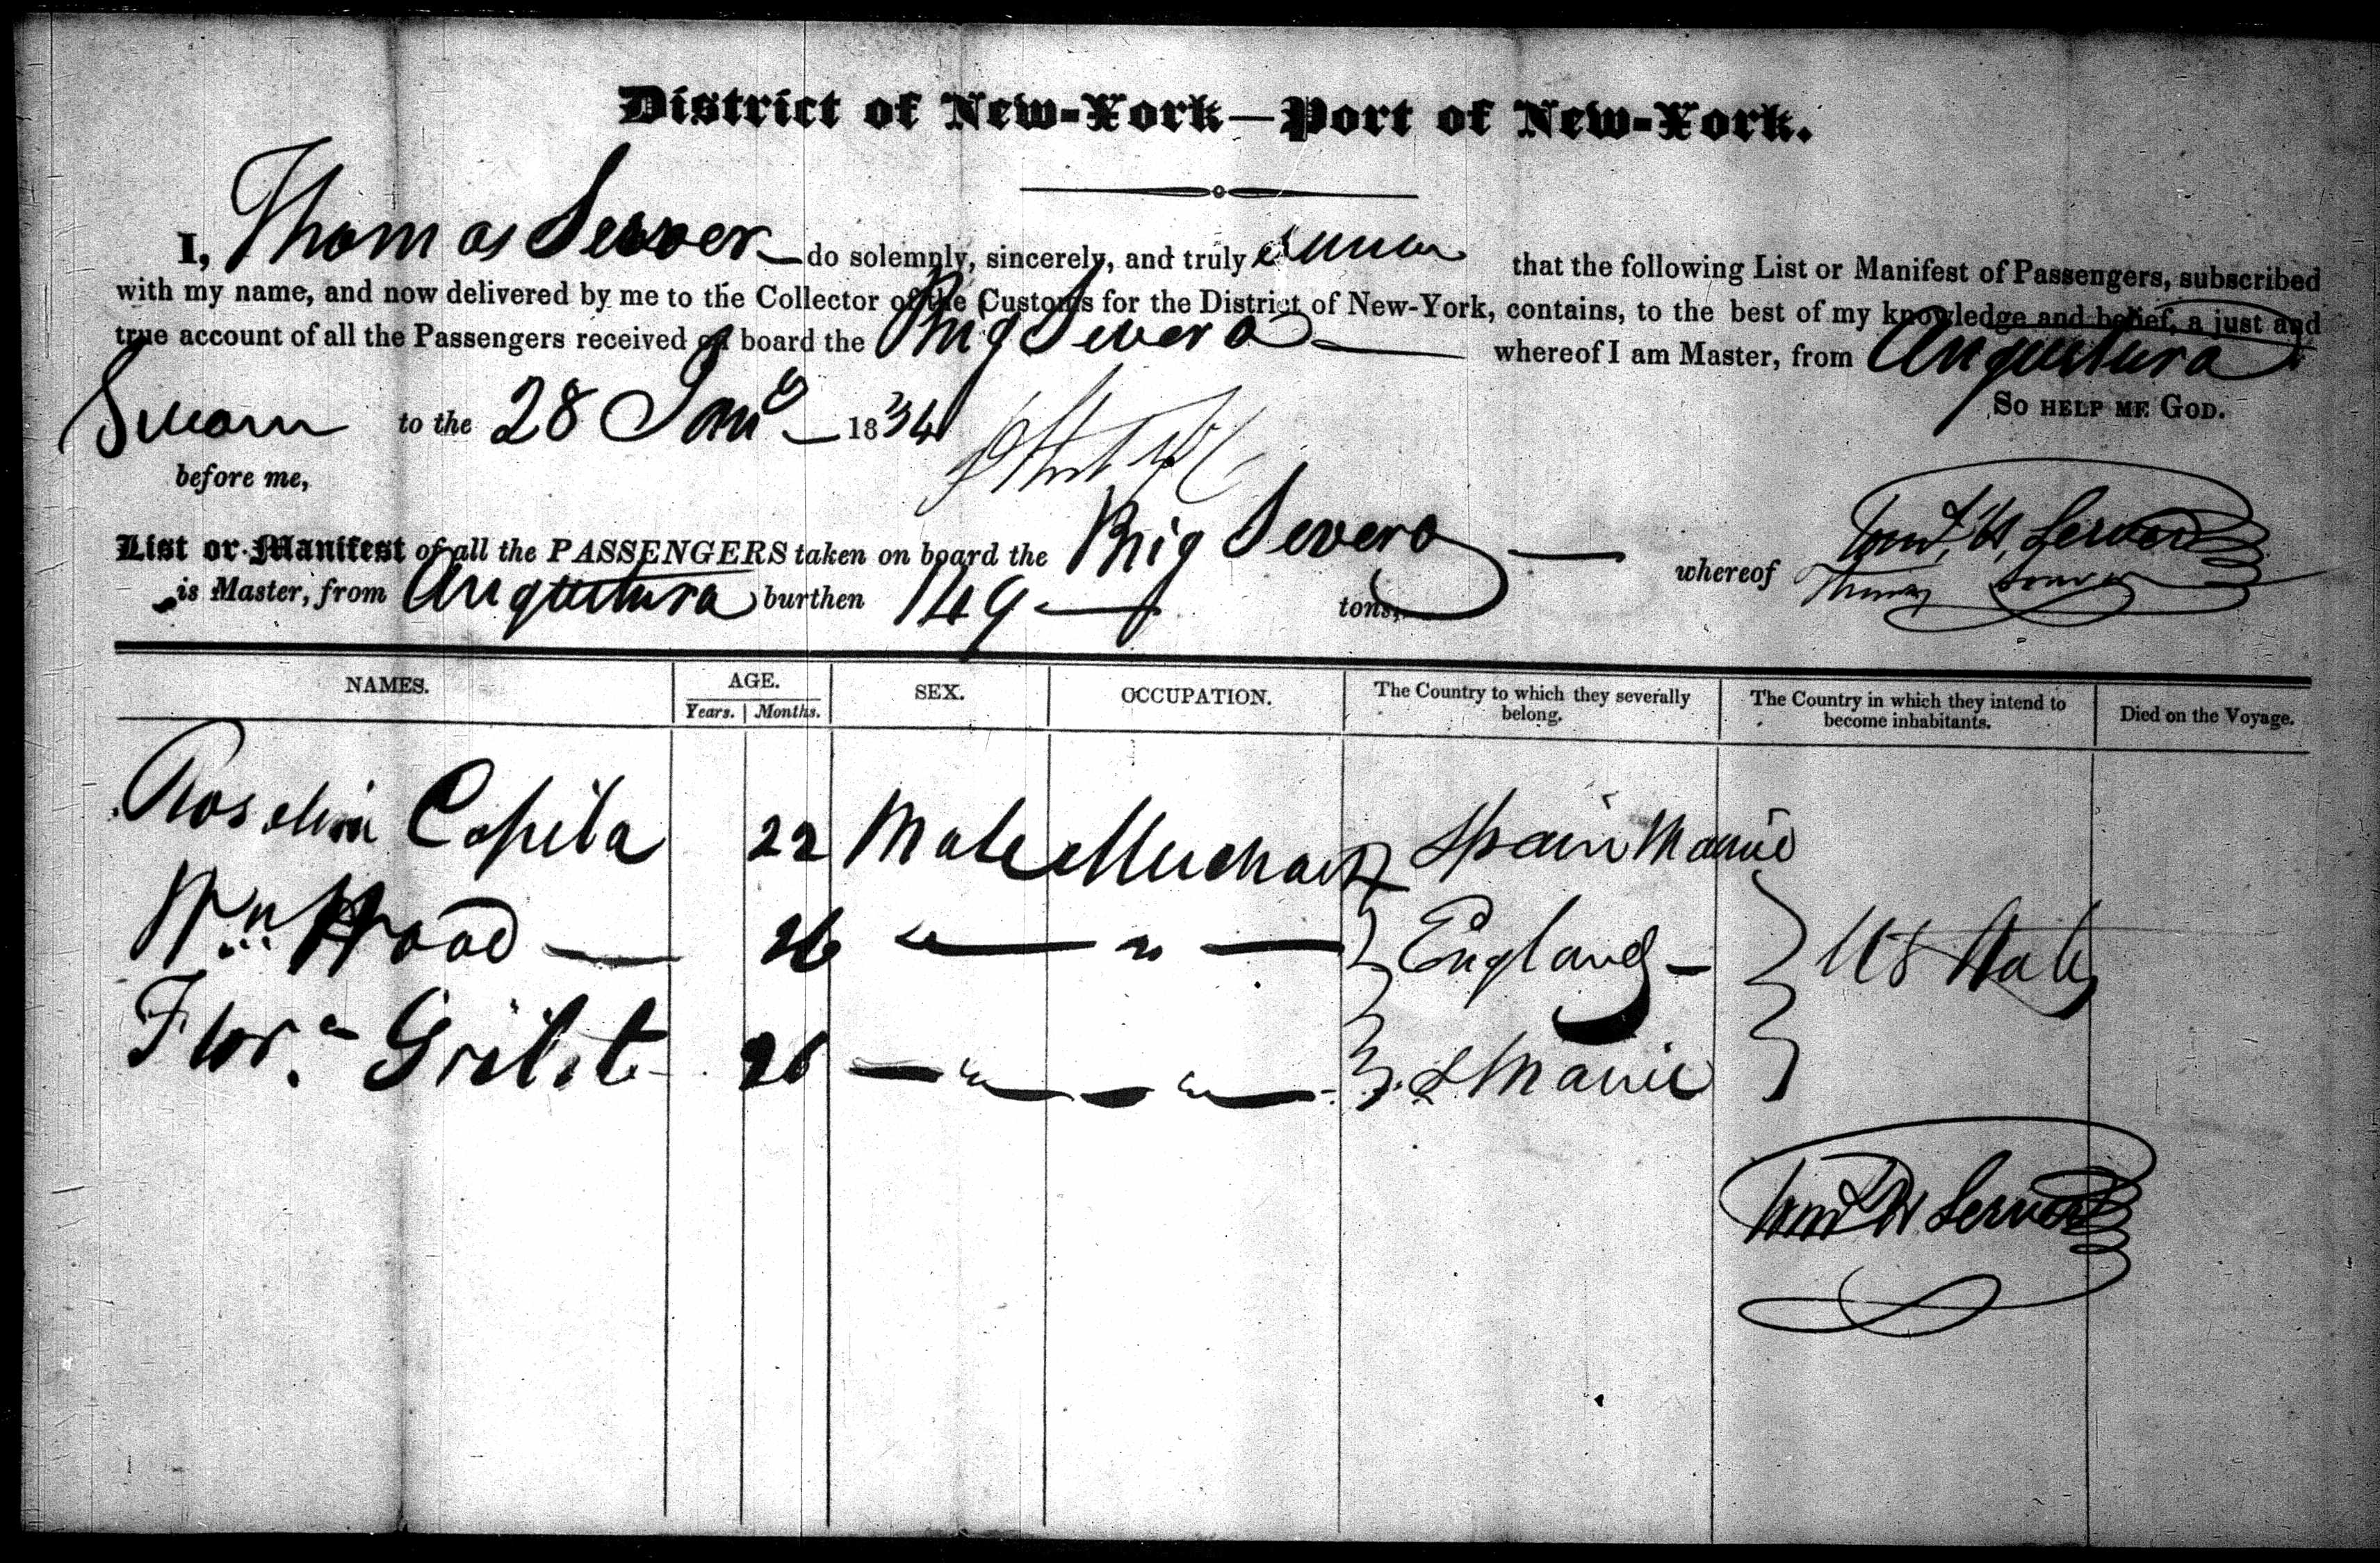 District of New-York—Port of New-York.
I, Thomas Server do solemnly, sincerely, and truly swear that the following List or Manifest of Passengers, subscribed
with my name, and now delivered by me to the Collector of the Customs for the District of New-York, contains, to the best of my knowledge and belief, a just and
true account of all the Passengers received on board the Brig Severo whereof I am Master, from Angustura
So help me God.
Sworn to the 28 Jany 1834
before me,
List or Manifest of all the PASSENGERS taken on board the Brig Severo whereof
is Master, from Angustura burthen 149 tons,
NAMES. AGE. SEX. OCCUPATION. The Country to which they severally belong. The Country in which they intend to become inhabitants. Died on the Voyage.
Years. Months.
22 Male Spain
Wm Wood 26 " " England U States
26 " "